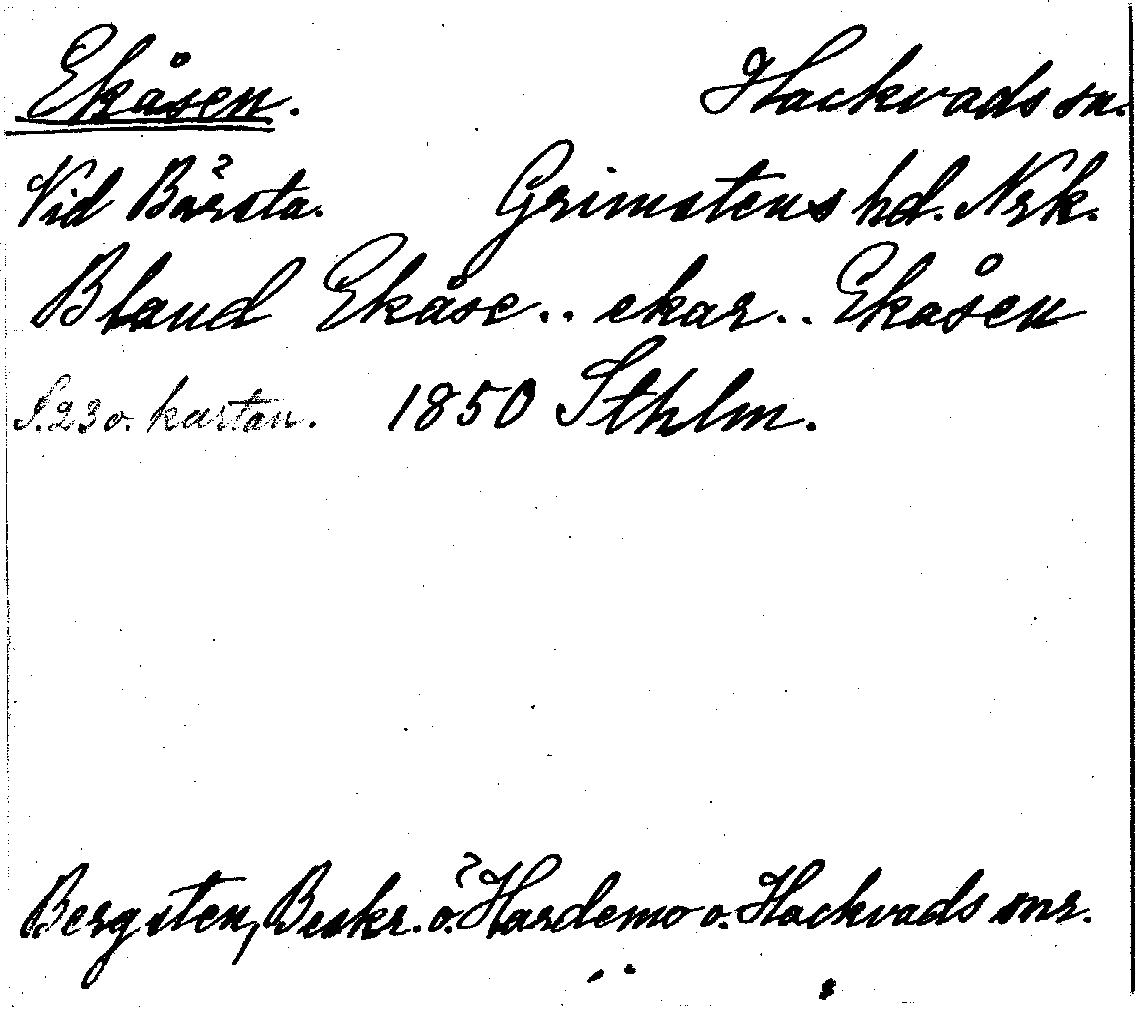 Ekåsen. Hackvads sn.
Vid Bärsta. Grimstens hd. Nrk.
Bland Ekåse.. ekar.. Ekåsen
S. 230. kartan. 1850 Sthlm.
Bergsten, Beskr. ö. Hardemo o. Hackvads snr.